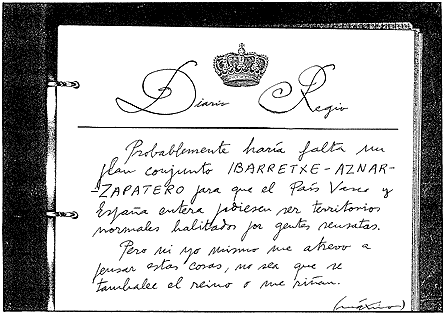 Diario Regio
Probablemente haría falta un
plan conjunto IBARRETXE-AZNAR-
-ZAPATERO para que el País Vasco y
España entera pudiesen ser territorios
normales habitados por gentes sensatas.
Pero ni yo mismo me atrevo a
pensar estas cosas, no sea que se
tambalee el reino o me riñan.
(máximo)